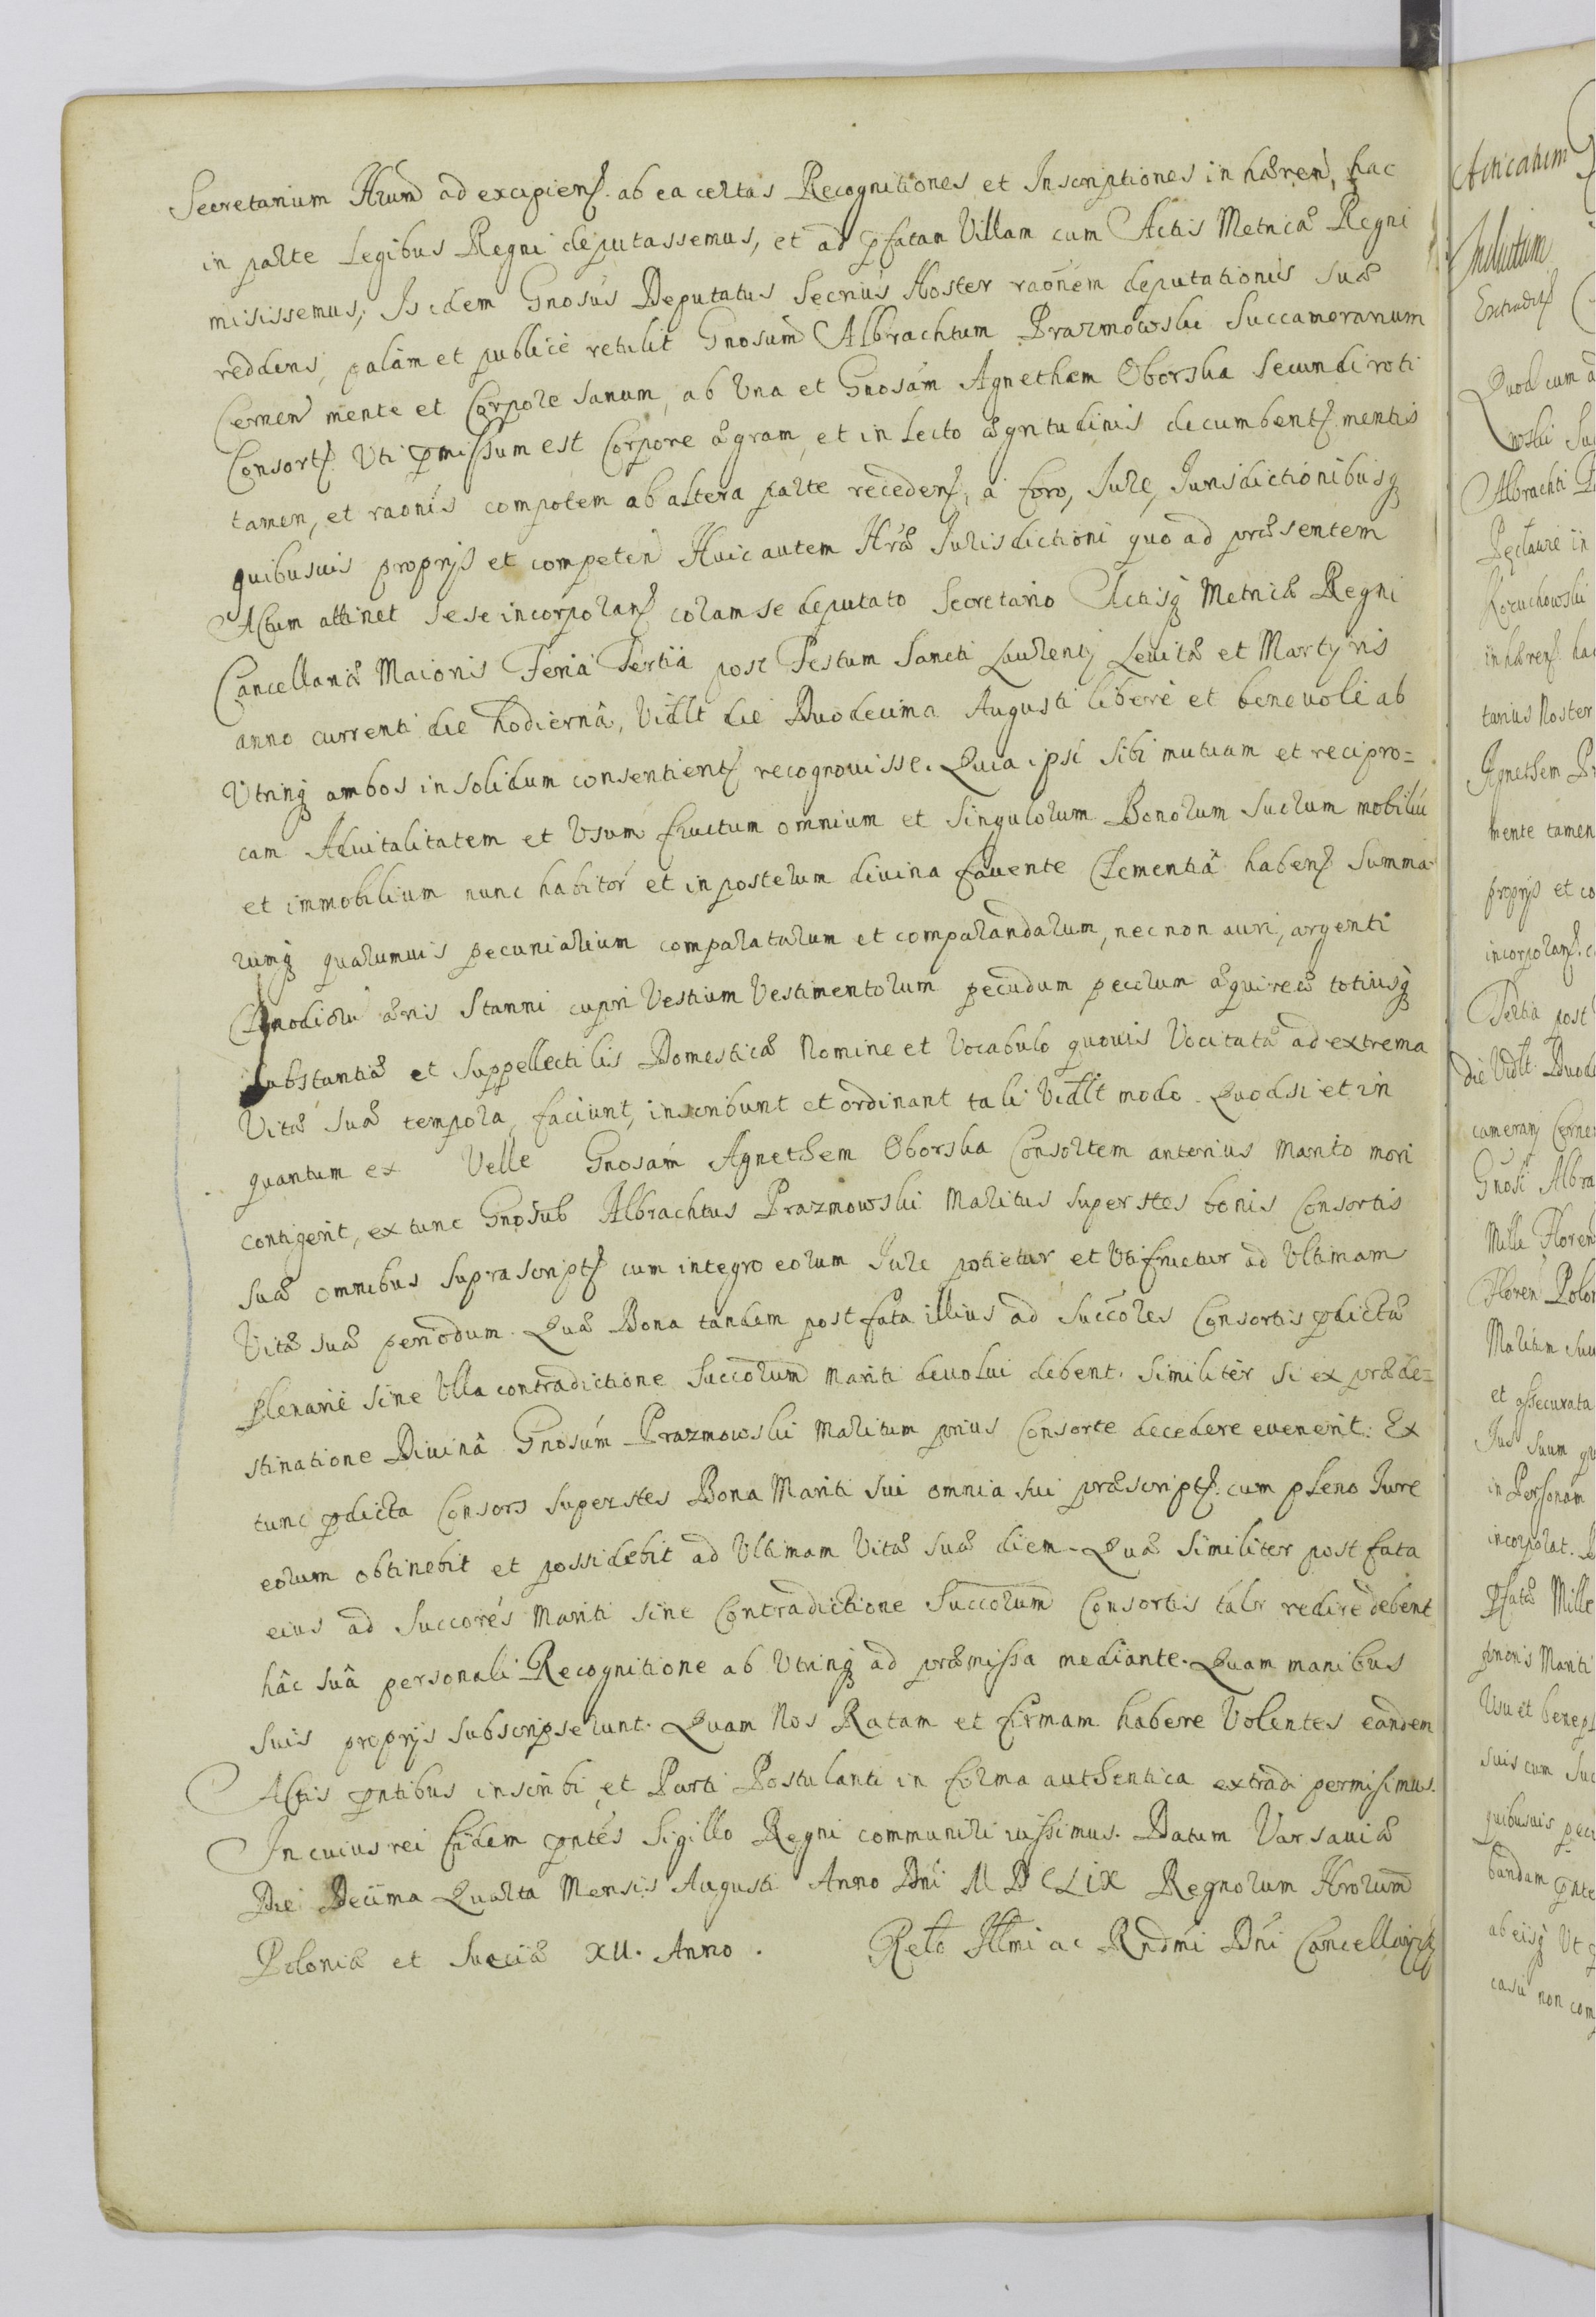 Secretarium Nrum ad excipiens. ab ea certas Recognitiones et Inscriptiones in hæren, hac
in parte Legibus Regni deputassemus, et ad pfatam Villam cum Actis Metricæ Regni
misissemus, Is idem Gnosus Deputatus Secrius Noster raonem deputationis suæ
reddens, palam et publicè retulit Gnosum Albrachtum Prazmowski Succamerarium
Cernen mente et Corpore sanum, ab Una et Gnosam Agnethem Oborska secundi voti
Consort. Uti pmissum est Corpore ægram, et in Lecto ægritudinis decumbent. mentis
tamen, et raonis compotem ab altera parte receden., a foro, Jure, Jurisdictionibusq
quibusuis proprijs et competen Huic autem Nræ Jurisdictioni quo ad præsentem
Actum attinet sese incorporan. coram se deputato Secretario Actisq Metricæ Regni
Cancellariæ Maioris Feria Tertia post Festum Sancti Laurentij Leuitæ et Martyris
anno currenti die hodiernâ, Vidlt die Duodecima Augusti liberè et beneuolè ab
Utrinq ambos in solidum consentient. recognouisse. Quia ipsi sibi mutuam et recipro=
cam Aduitalitatem et Usum fructum omnium et singulorum Bonorum suorum mobiliu
et immobilium nunc habitor et in posterum diuina fauente Clementiâ haben. summa
rumq quarumuis pecuniarium comparatarum et comparandarum, nec non auri, argenti
Clenodioru æris Stanni cupri Vestium Vestimentorum pecudum pecorum æquireæ totiusq
substantiæ et Suppellectilis Domesticæ Nomine et Vocabulo quouis Vocitatæ ad extrema
Vitæ suæ tempora, faciunt, inscribunt et ordinant tali Vidlt modo. Quodsi et in
quantum ex Velle Gnosam Agnethem Oborska Consortem anterius Marito mori
contigerit, ex tunc Gnosus Albrachtus Prazmowski Maritus superstes bonis Consortis
suæ omnibus suprascript. cum integro eorum Jure potietur et Utifruetur ad Ultimam
Vitæ suæ periodum. Quæ Bona tandem post fata illius ad Succores Consortis pdictæ
plenariè sine Ulla contradictione Succorum Mariti deuolui debent. Similiter si ex præde=
stinatione Diuinâ Gnosum Prazmowski Maritum prius Consorte decedere euenerit. Ex
tunc pdicta Consors superstes Bona Mariti sui omnia sui præscript. cum pleno Jure
eorum obtinebit et possidebit ad Ultimam Vitæ suæ diem. Quæ similiter post fata
eius ad Succores Mariti sine Contradictione Succorum Consortis talr redire debent
hâc suâ personali Recognitione ab Utrinq ad præmissa mediante. Quam manibus
suis proprijs subscripserunt. Quam Nos Ratam et firmam habere Volentes eandem
Actis pntibus inscribi, et Parti Postulanti in forma authentica extradi permisimus.
In cuius rei fidem pntes Sigillo Regni communiri iussimus. Datum Varsauiæ
Die Decima Quarta Mensis Augusti Anno Dni MDCLIX Regnorum Nrorum
Poloniæ et Sueciæ XII. Anno. Relo Illmi ac Rndmi Dni Cancellarij
Acticatum
Quod cum
wski
Albrachti
inhæren. ha
tarius Noster
Agnethem Pr
mente tamen
proprijs et co
incorporan. c
Tertia post
die Vidlt Duod
camerarij Cerne
Gnosi Albra
Mille Floren
Floren Polon
Maritum suu
Jus suum qu
in Personam
incorporat.
pfatæ Mille
prioris Mariti
Usu et benepl
suis cum suc
quibusuis pec
ab eisq Ut
casu non com